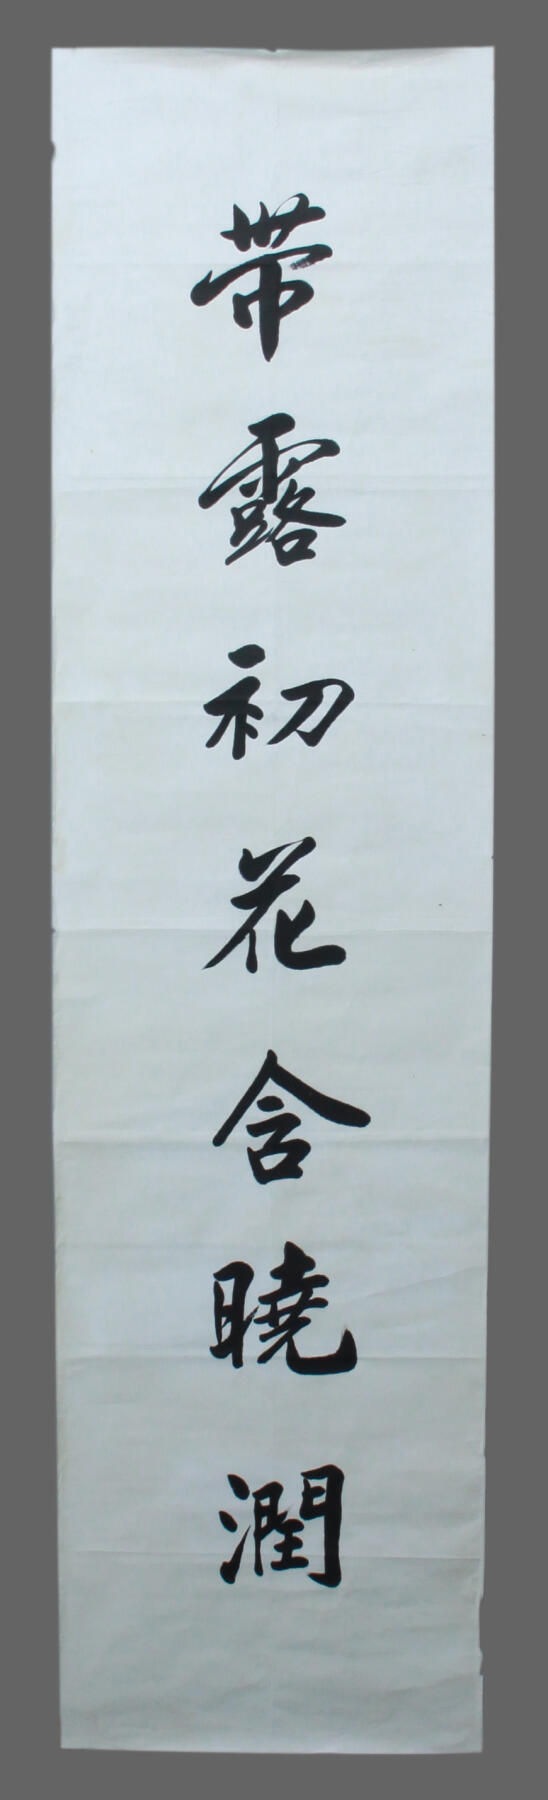 带露初花含曉潤